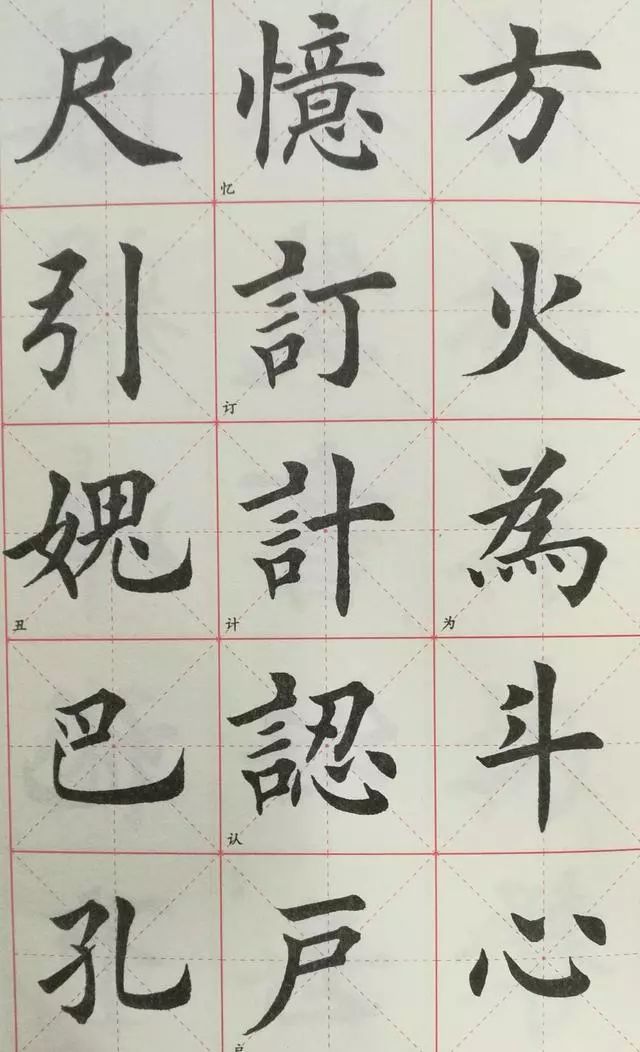 方火為斗心
为
憶訂計認戸
忆
订
计
认
尺引媿巴孔
丑